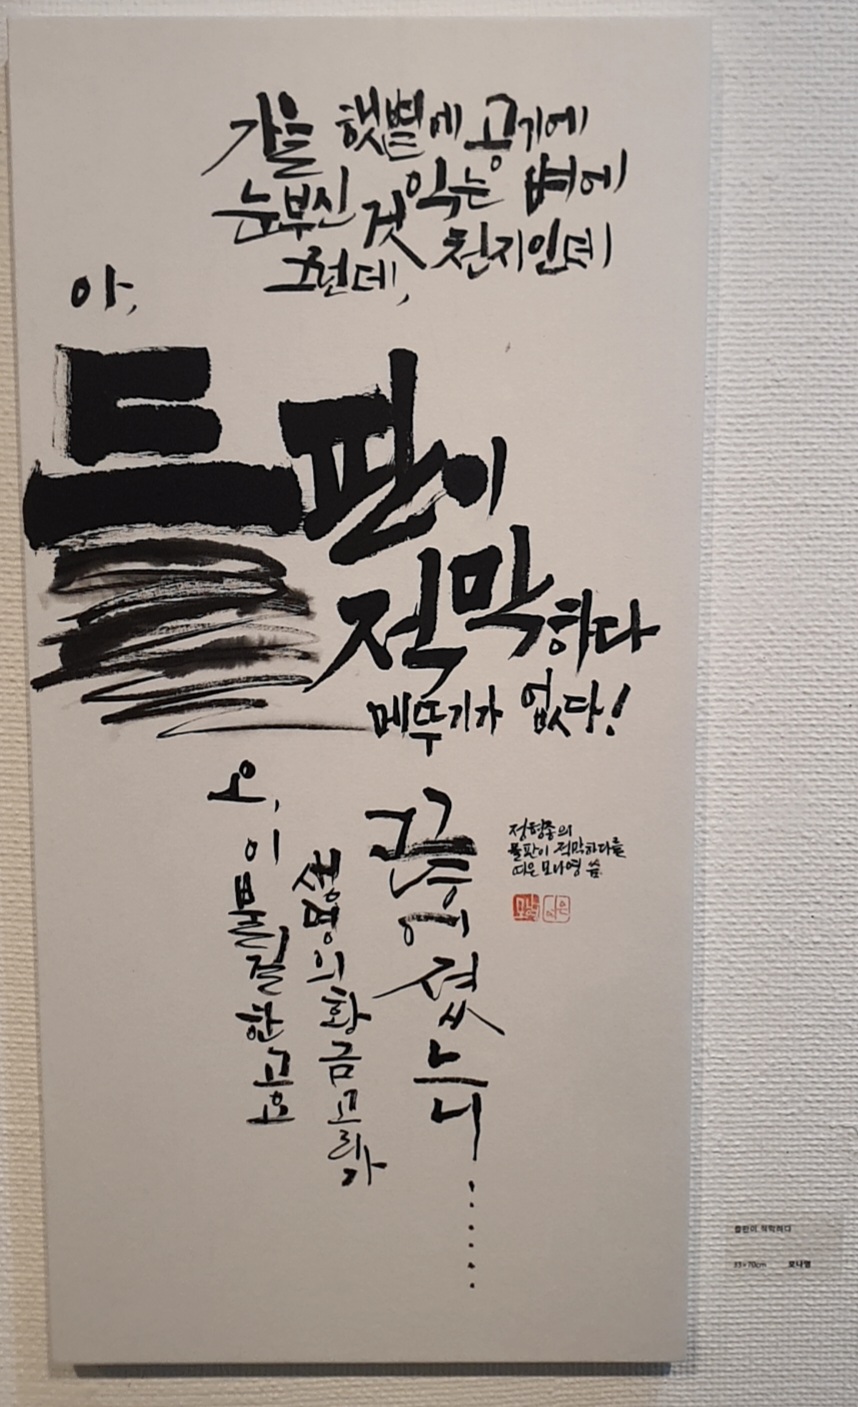 가을 햇볕에 공기에
익는 벼에
눈부신 것 천지인데
그런데,
아,
들판이
적막하다
메뚜기가 없다!
오,
이 불길한 고요
생명의 황금고리가
끊어졌느니......
정현종의
들판이 적막하다를
띠운 모나영 씀
들판이 적막하다
33×70cm